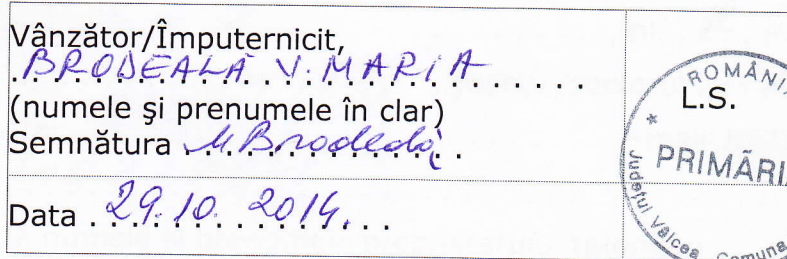 Vânzător/Împuternicit,
BRODEALĂ V. MARIA
(numele şi prenumele în clar)
Semnătura M Brodeală
Data 29.10.2014
L.S.
ROMÂNIA
* PRIMĂRIA
Judeţul Vâlcea Comuna